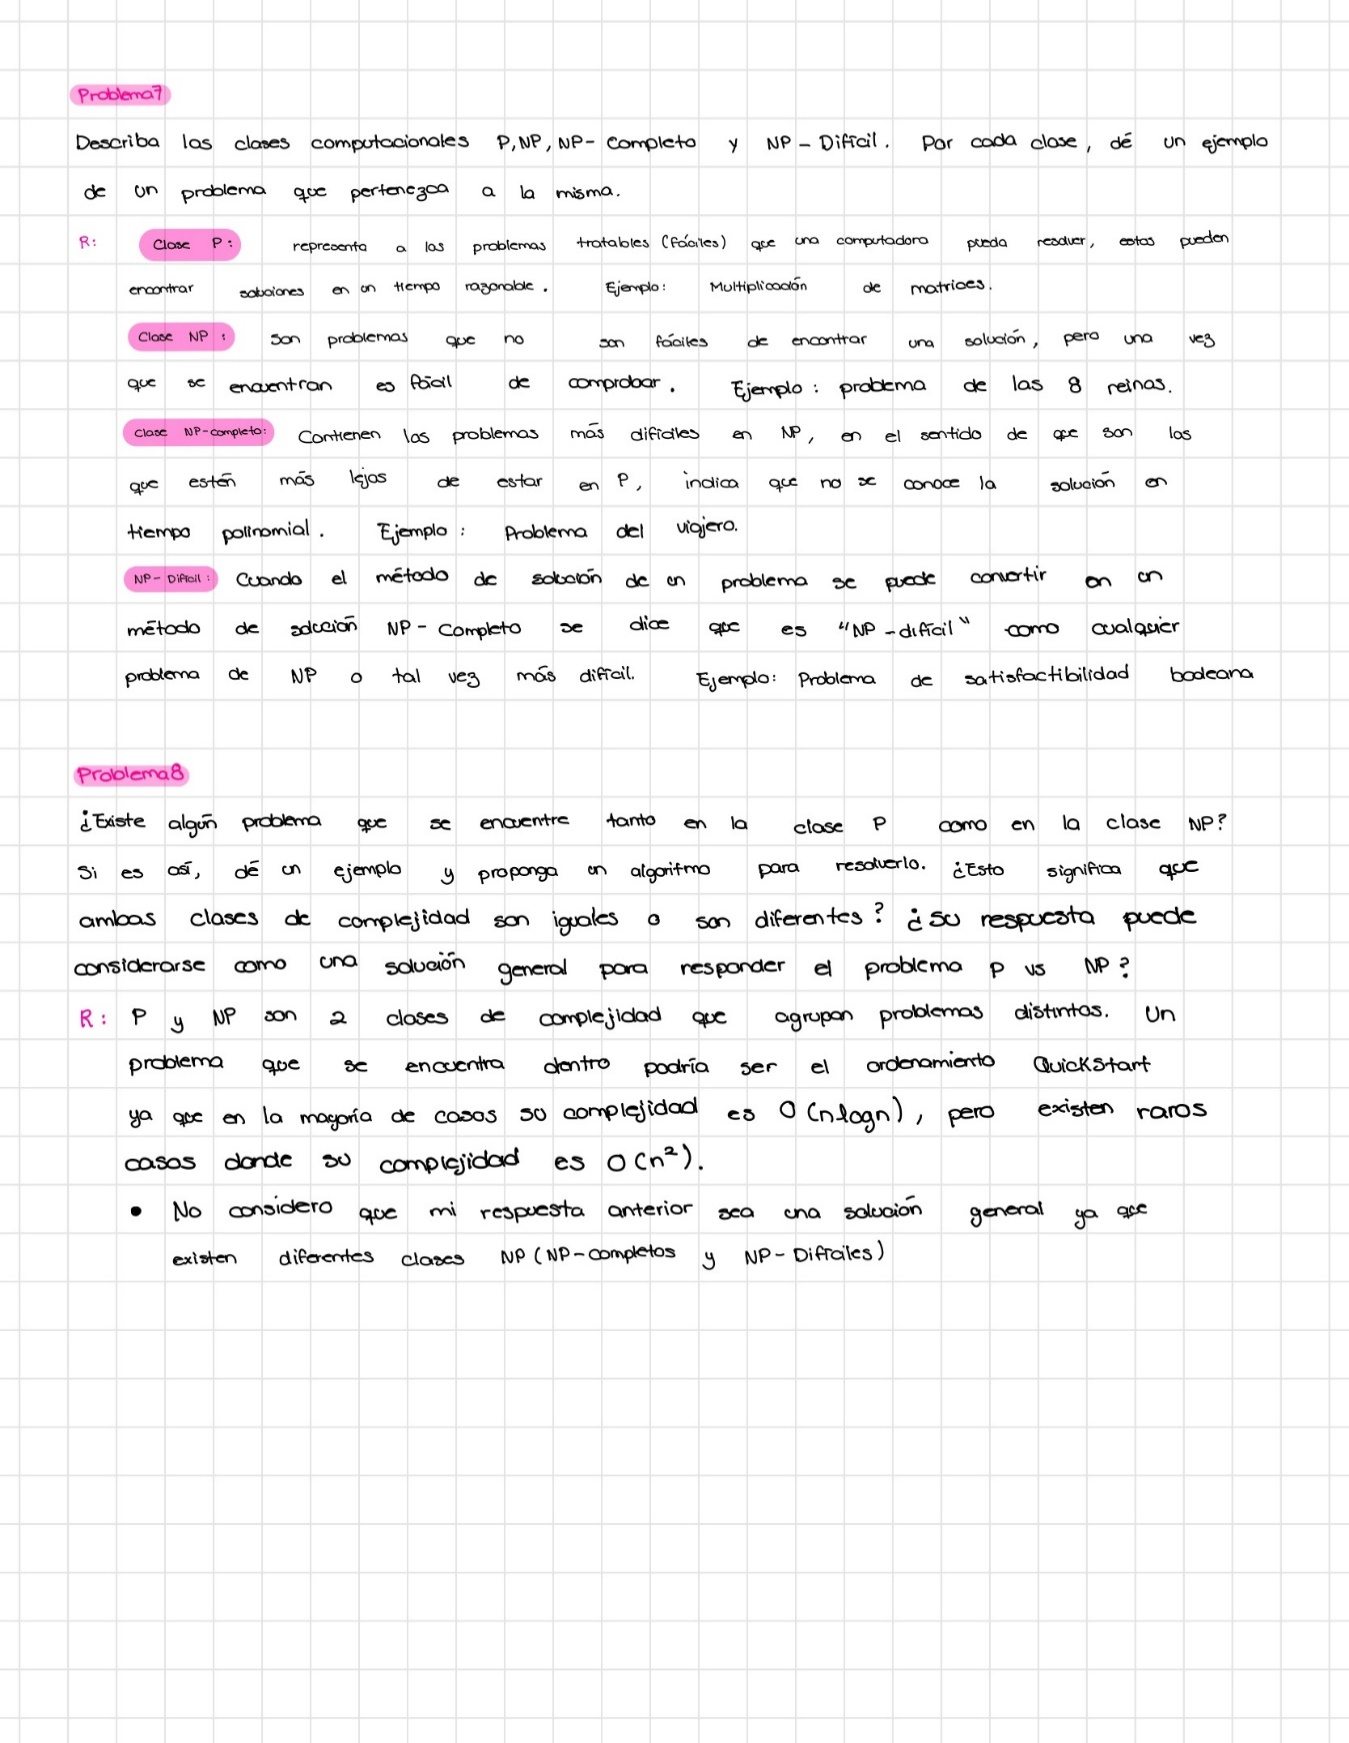 Problema7
Describa las clases computacionales P, NP, NP- Completo y NP - Difícil. Por cada clase, dé un ejemplo
de un problema que pertenezca a la misma.
R: Clase P: representa a los problemas tratables (fáciles) que una computadora pueda resolver, estos pueden
encontrar soluciones en un tiempo razonable. Ejemplo: Multiplicación de matrices.
Clase NP: son problemas que no son fáciles de encontrar una solución, pero una vez
que se encuentran es fácil de comprobar. Ejemplo: problema de las 8 reinas.
Clase NP-completo: Contienen los problemas más difíciles en NP, en el sentido de que son los
que estén más lejos de estar en P, indica que no se conoce la solución en
tiempo polinomial. Ejemplo: Problema del viajero.
NP- Difícil: Cuando el método de solución de un problema se puede convertir en un
método de solución NP - Completo se dice que es "NP -difícil" como cualquier
problema de NP o tal vez más difícil. Ejemplo: Problema de satisfactibilidad booleana
Problema8
¿Existe algún problema que se encuentre tanto en la clase P como en la clase NP?
Si es así, dé un ejemplo y proponga un algoritmo para resolverlo. ¿Esto significa que
ambas clases de complejidad son iguales o son diferentes? ¿su respuesta puede
considerarse como una solución general para responder el problema P vs NP?
R: P y NP son 2 clases de complejidad que agrupan problemas distintos. Un
problema que se encuentra dentro podría ser el ordenamiento QuickStart
ya que en la mayoría de casos su complejidad es O(nlogn), pero existen raros
casos donde su complejidad es O(n²).
• No considero que mi respuesta anterior sea una solución general ya que
existen diferentes clases NP (NP-completos y NP- Difíciles)